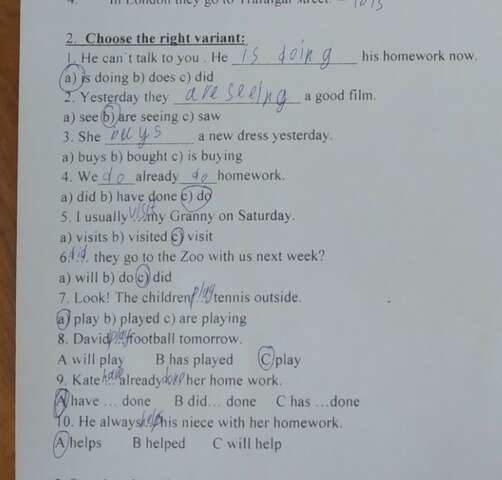 4. In London they go to Trafalgar street. –
2. Choose the right variant:
1. He can`t talk to you . He is doing his homework now.
a) is doing b) does c) did
2. Yesterday they are seeing a good film.
a) see b) are seeing c) saw
3. She buys a new dress yesterday.
a) buys b) bought c) is buying
4. We do already do homework.
a) did b) have done c) do
5. I usually visit my Granny on Saturday.
a) visits b) visited c) visit
6. did they go to the Zoo with us next week?
a) will b) do c) did
7. Look! The children play tennis outside.
a) play b) played c) are playing
8. David play football tomorrow.
A will play B has played C play
9. Kate have already done her home work.
A have ... done B did... done C has ...done
10. He always helps his niece with her homework.
A helps B helped C will help